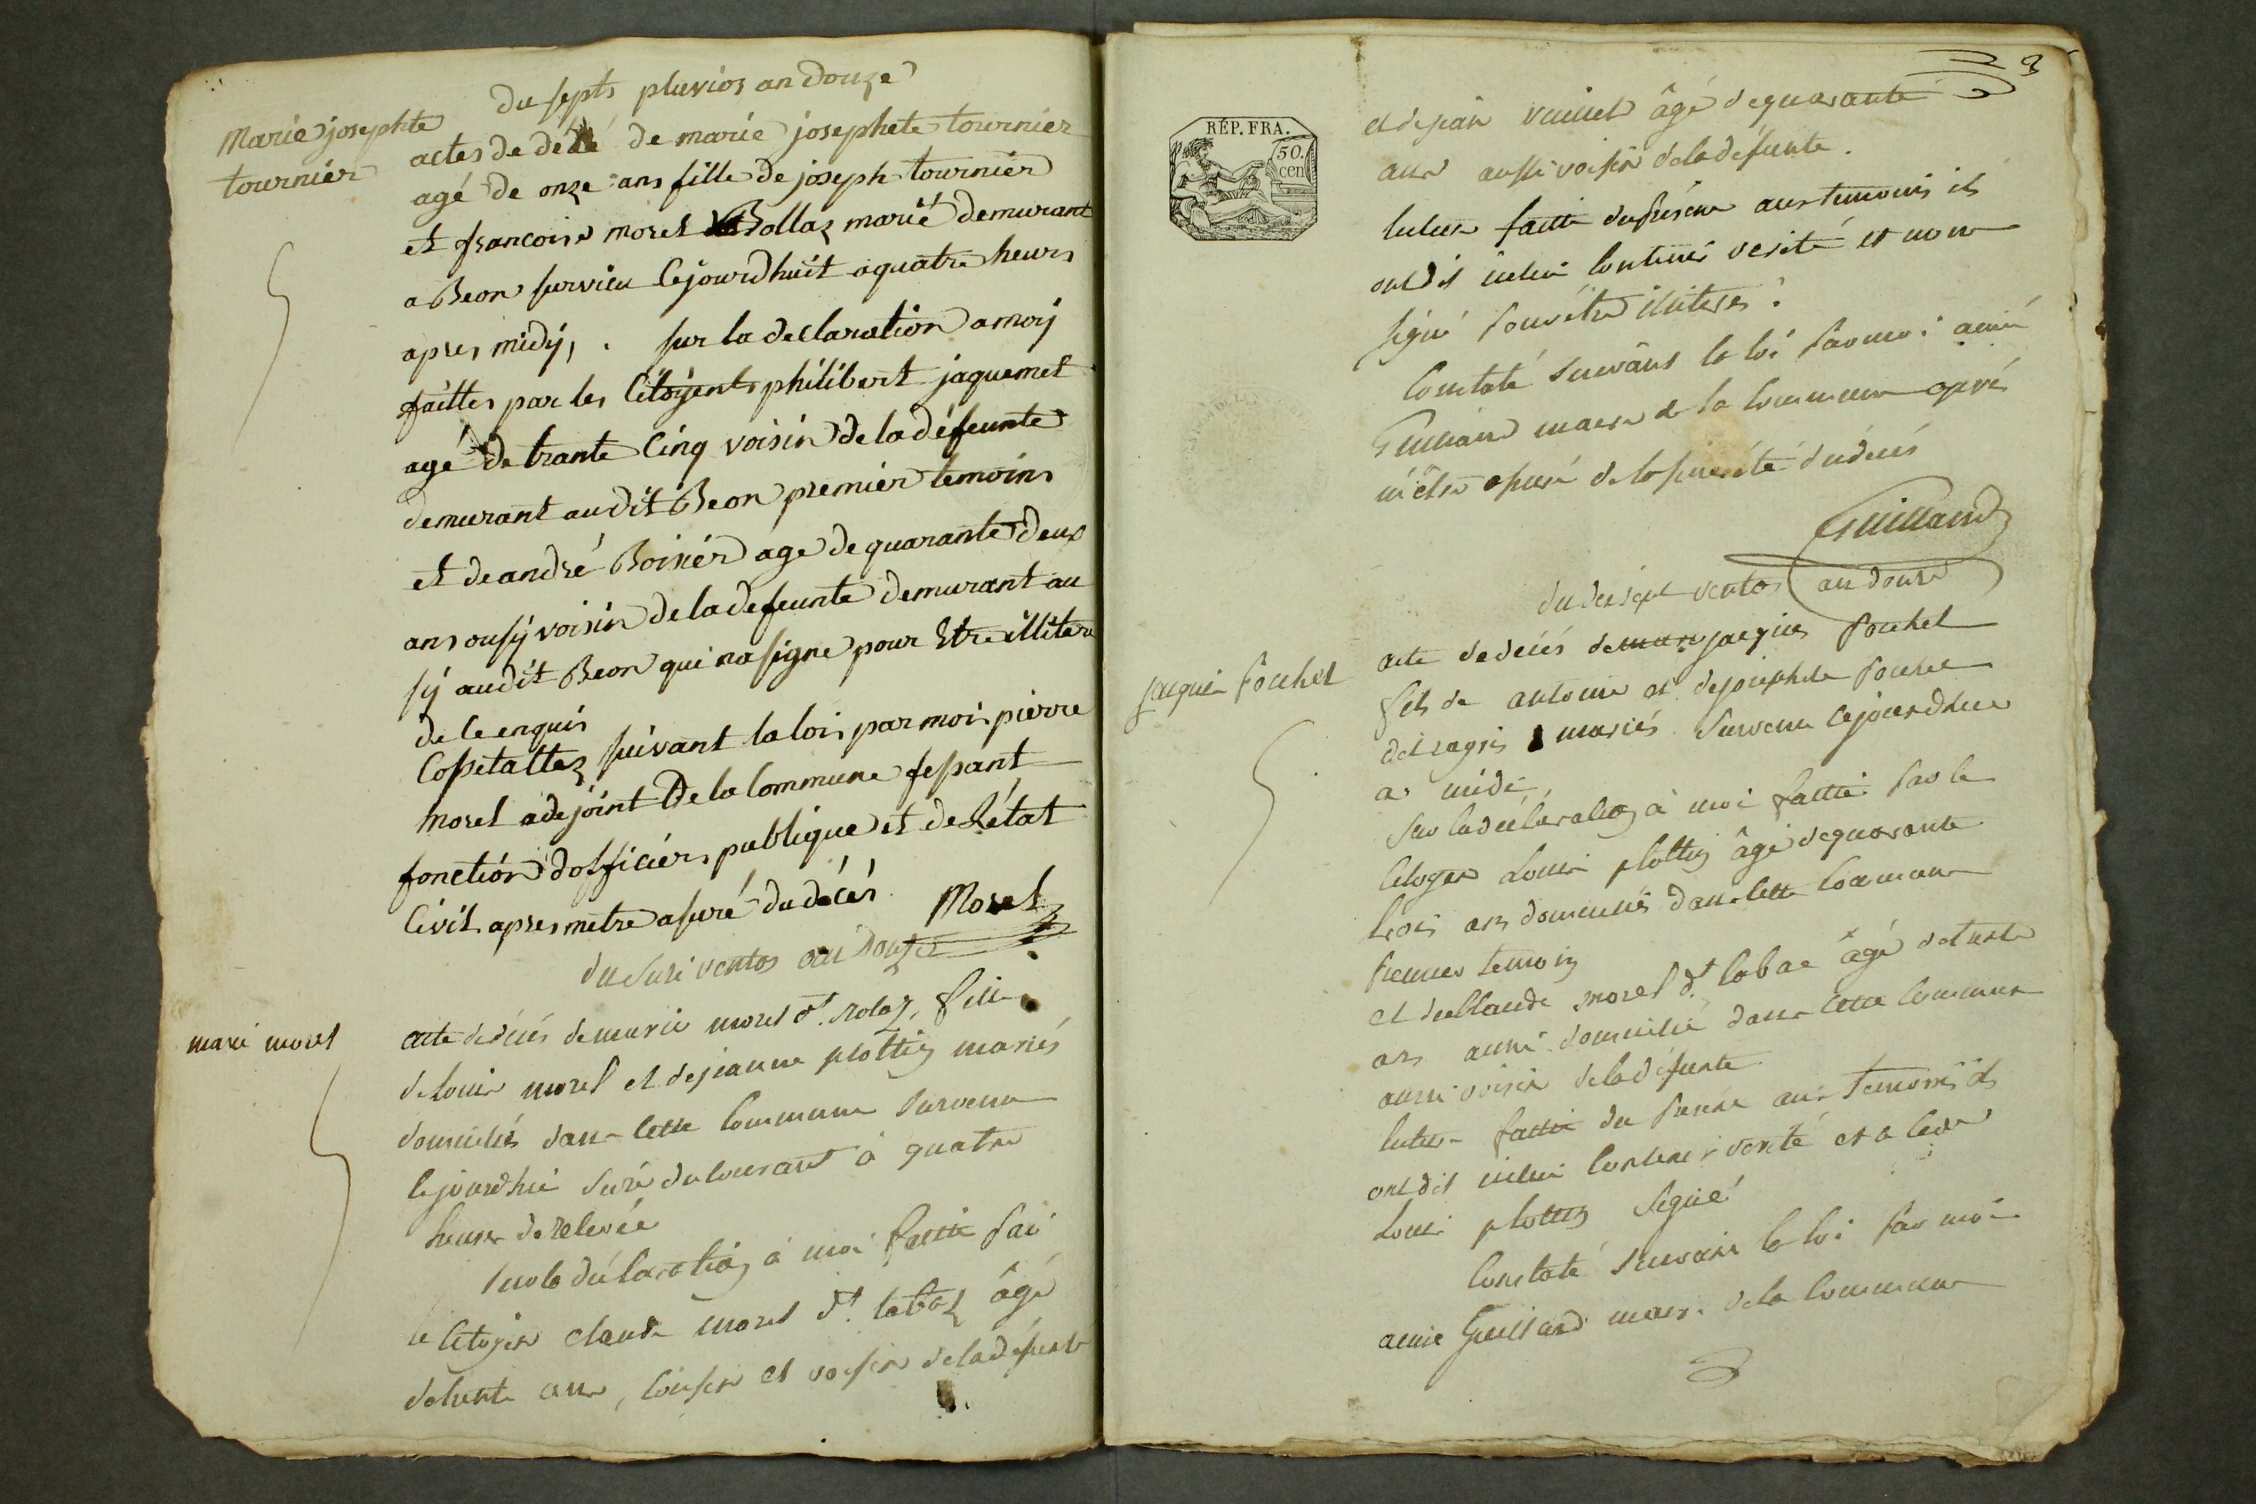 du septs pluvios an douze
Marie josephte
tournier
actes de dédé de marie josephete tournier
agé de onze ans fille de joseph tournier
et francoise morel Bollaz marié demurant
a Beon survieu Cejourdhuit a quatre heurs
apres midÿ, . sur la declaration a moÿ
faittes par les Citoÿents philibert jaquemet
agé de trante Cinq voisin de la défeunte
demurant au dit Beon premier temoins
et de andré Boinér age de quarante deux
ans ousÿ voisin de la defeunte demurant au
sÿ audit Beon qui na signe pour Etre illitere
de le enquis
Costataltez suivant la loi par moi pierre
morel adejoint de la Commune fessant
fonctión d'officiér publique et de L'état
Civil apres metre asuré du décés
Morel
du ventos an douze
marie morel
acte de décés de marie morel dt. rolaz, fille
de louis morel et de jeanne plottin mariés
domiciliés dans cette Commune survenu
Cejourdhui du Courant à quatre
heures de relevée
sur la déclaration à moi faitte par
le Citoyen claude morel dt. labaz âgé
de trente ans, Cousin et voisin de la défunte
3
RÉP. FRA.
50.
cen
et de jean âgé de quarante
ans aussi voisin de la défunte.
lecture faitte du présent aux temoins ils
ont dit icelui Contenir verité et non
signé pour être illiterés.
Constaté suivant la loi par moi aimé
Guilland maire de la Commune après
m'être assuré de la du décés
Guilland
du dix sept ventos an douze
jacques pochet
acte de décés de jacques pochet
fils de antoine et de josephte
mariés survenu Cejourdhui
a midi
sur la déclaration à moi faitte par le
Citoyen Louis plottin âgé de quarante
trois ans domicilié dans Cette Commune
premier temoin
et de Claude morel dt. labaz âgé de trente
ans aussi domicilié dans Cette Commune
aussi voisin de la défunte
lecture faitte du présent aux temoins ils
ont dit icelui Contenir verité et a
Louis plottin signé
Constaté suivant la loi par moi
aimé Guilland maire de la Commune